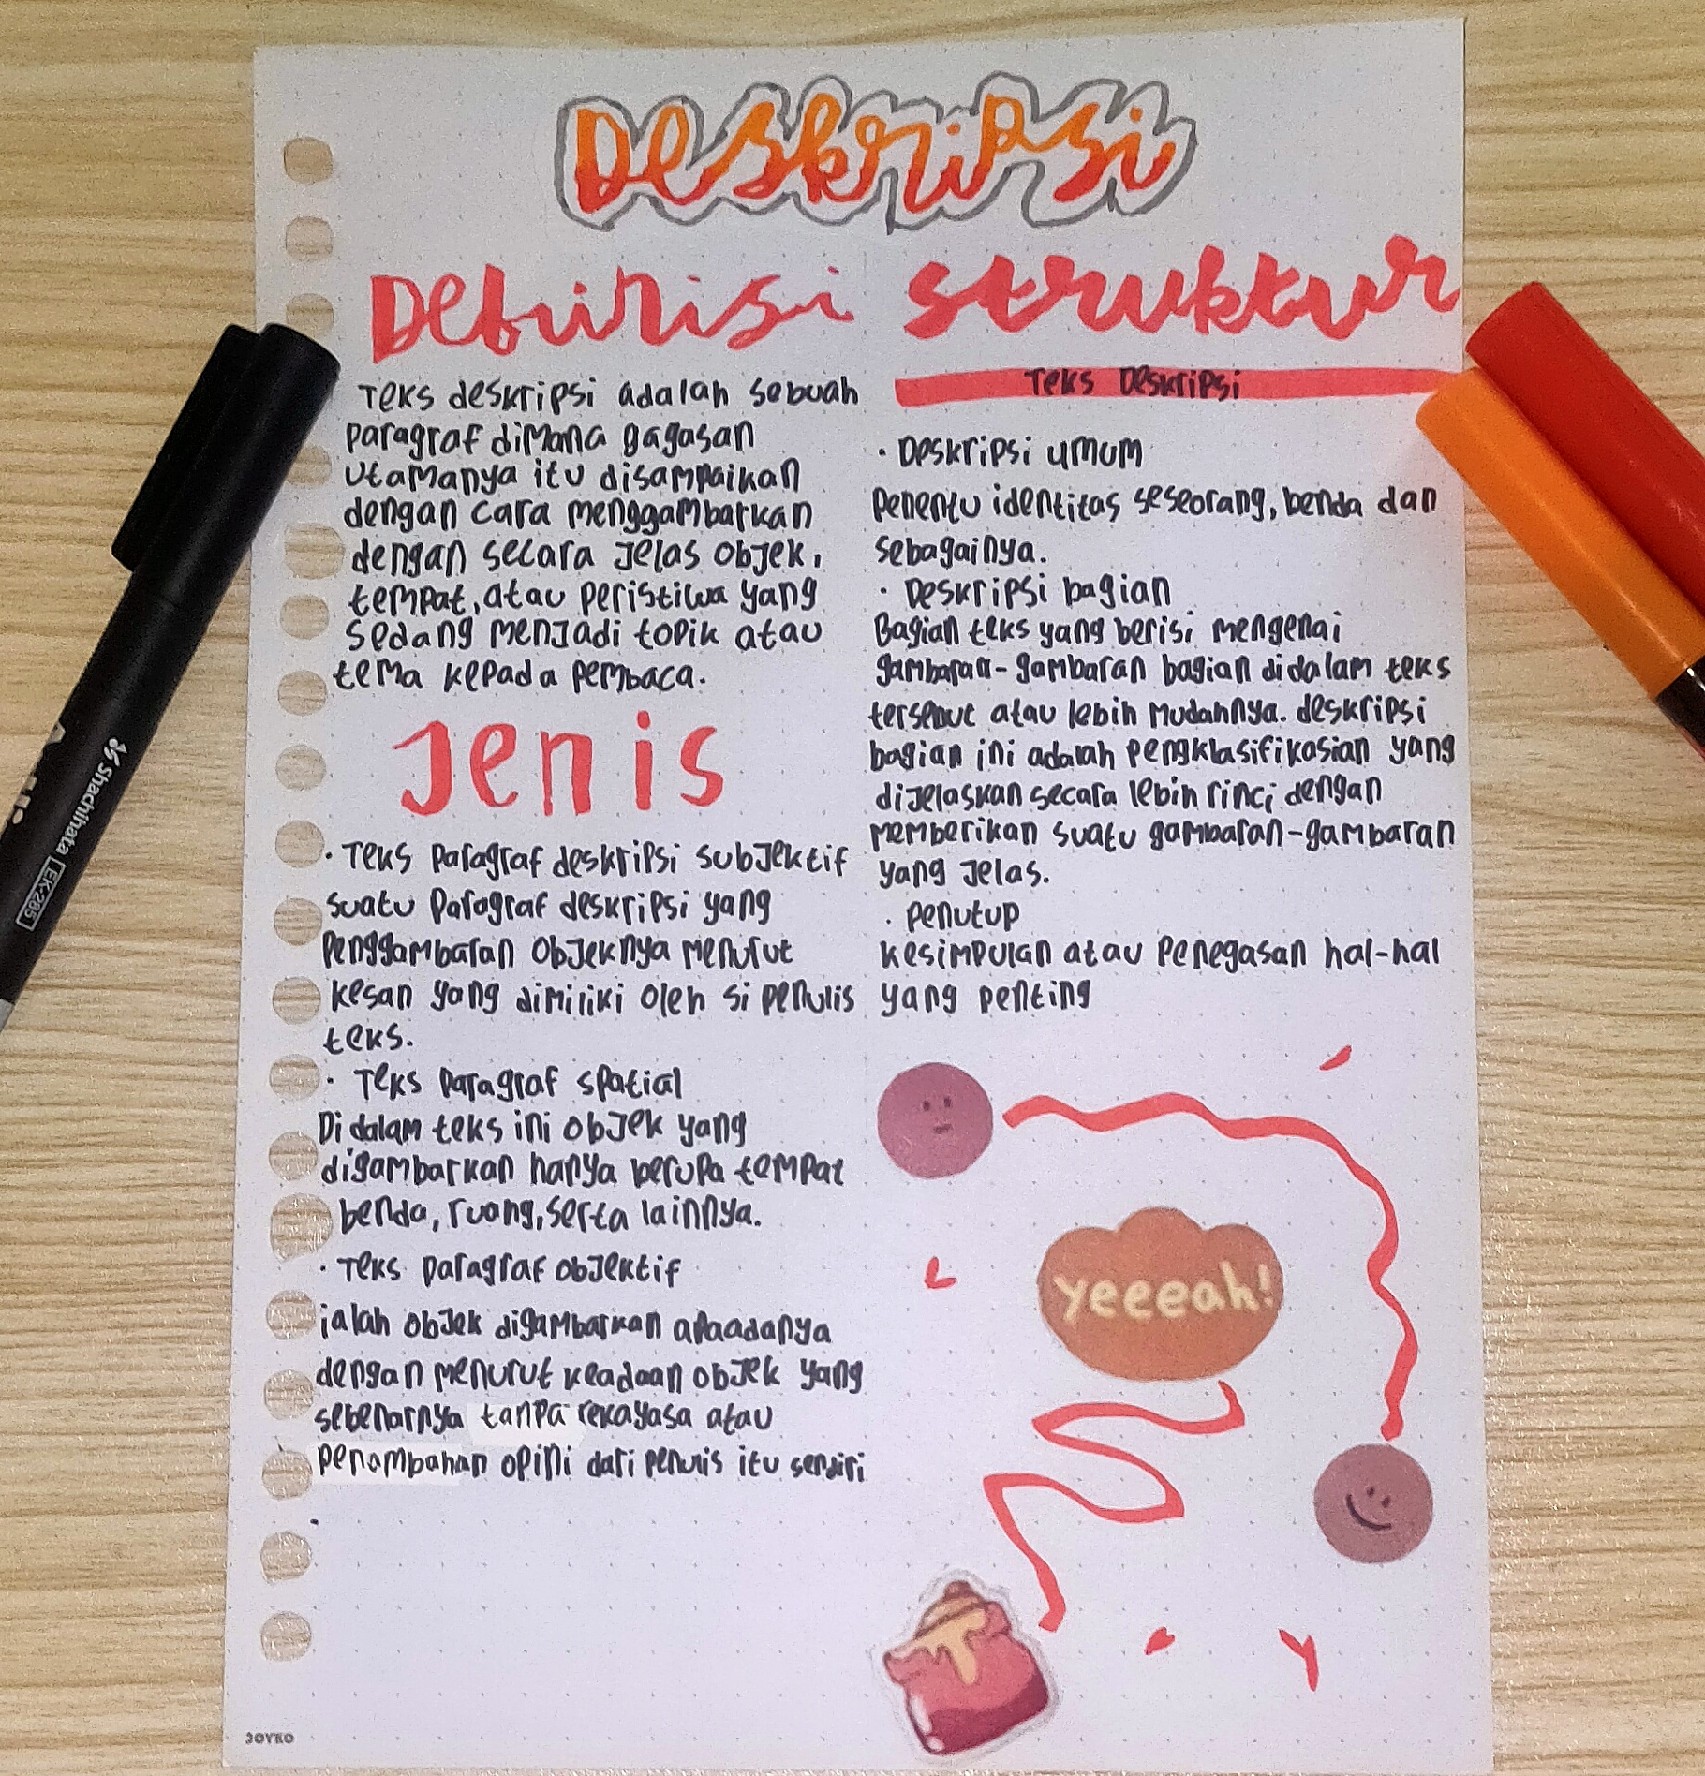 Deskripsi
Definisi
Teks deskripsi adalah sebuah
paragraf dimana gagasan
utamanya itu disampaikan
dengan cara menggambarkan
dengan secara jelas objek,
tempat, atau peristiwa yang
sedang menjadi topik atau
tema kepada pembaca.
Jenis
• Teks paragraf deskripsi subjektif
suatu paragraf deskripsi yang
penggambaran objeknya menurut
kesan yang dimiliki oleh si penulis
teks.
• Teks paragraf spatial
Didalam teks ini objek yang
digambarkan hanya berupa tempat
benda, ruang, serta lainnya.
• Teks paragraf objektif
ialah objek digambarkan apaadanya
dengan menurut keadaan objek yang
sebenarnya tanpa rekayasa atau
penambahan opini dari penulis itu sendiri
struktur
Teks Deskripsi
• Deskripsi umum
Penentu identitas seseorang, benda dan
sebagainya.
• Deskripsi bagian
Bagian teks yang berisi mengenai
gambaran-gambaran bagian didalam teks
tersebut atau lebih mudahnya. deskripsi
bagian ini adalah pengklasifikasian yang
dijelaskan secara lebih rinci dengan
memberikan suatu gambaran-gambaran
yang jelas.
• penutup
kesimpulan atau penegasan hal-hal
yang penting
yeeeah!
Shachihata EK-285
JOYKO